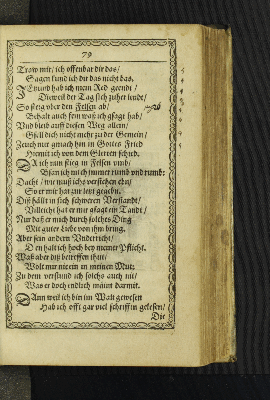 79
Traw mir/ ich offenbar dir das/
Sagen kund ich dir das nicht bas.
Jetzund hab ich mein Red geendt/
Dieweil der Tag sich zuher lendt/
So steig vber den Felsen ab/
Behalt auch fein was ich gsagt hab/
Vnd bleib auff diesen Weg allein/
Gsöll dich nicht mehr zu der Gemein/
Zeuch nur gmach hin in Gottes Fried
Hiemit ich von dem Gierten schied.
Dich nun stieg in Felsen
Bsan ich mich jmmer rumb vnd rumb:
Dacht/ wie muß ichs verstehen
Er mir hat zur letzt gegebn.
Diß hällt in sich schweren Verstandt/
Villeicht hat er mir gsagt ein Tandt/
Nur daß er mich durch solches Ding
Mit guter Liebe von ihm bring.
Aber sein andern Vnderricht/
Den halt ich hoch bey meiner Pflicht.
Was aber diß betreffen thut/
Wolt mir nie ein in meinen Mut:
Zu dem verstand ich solchs auch nit/
Was er doch endlich maint darmit.
Dann weil ich bin im Walt gewesen
Hab ich offt gar viel schrifften gelesen/
Die